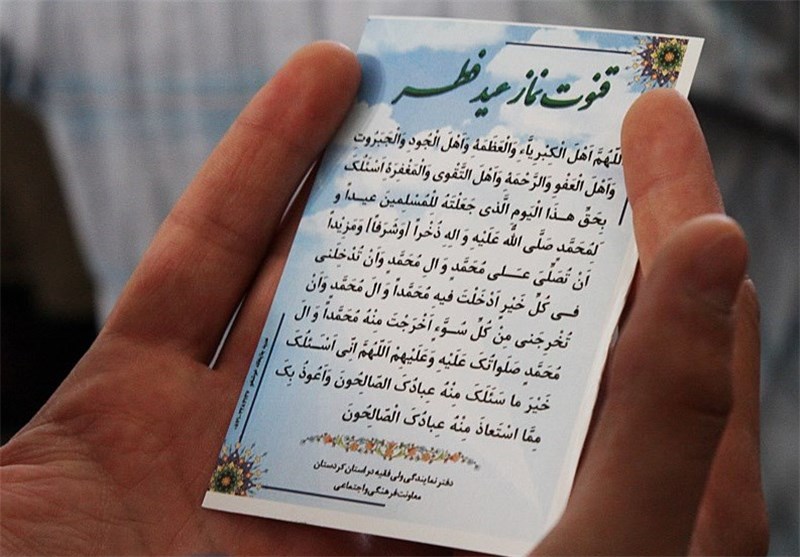 قنوت نماز عید فطر
اَللّهُمَّ اَهْلَ الْکِبْرِیاَّءِ وَالْعَظَمَهِ وَاَهْلَ الْجُودِ وَالْجَبَرُوتِ
وَاَهْلَ الْعَفْوِ وَالرَّحْمَهِ وَاَهْلَ التَّقْوی وَالْمَغْفِرَهِ اَسْئَلُکَ
بِحَقِّ هذَا الْیَومِ الَّذی جَعَلْتَهُ لِلْمُسْلِمینَ عیداً وَ
لِمُحَمَّد صَلَّی اللّهُ عَلَیْهِ وَ الِهِ ذُخْراً [وَشَرَفاً] وَمَزیْداً
اَنْ تُصَلِّیَ عَلی مُحَمَّدٍ وَ الِ مُحَمَّدٍ وَاَنْ تُدْخِلَنی
فی کُلِّ خَیْرٍ اَدْخَلْتَ فیهِ مُحَمَّداً وَ الَ مُحَمَّدٍ وَاَنْ
تُخْرِجَنی مِنْ کُلِّ سُوَّءٍ اَخْرَجْتَ مِنْهُ مُحَمَّداً وَ الَ
مُحَمَّدٍ صَلَواتُکَ عَلَیْهِ وَعَلَیْهِمْ اَللّهُمَّ اِنّی اَسْئَلُکَ
خَیْرَ ما سَئَلَکَ مِنْهُ عِبادُکَ الصّالِحُونَ وَاَعُوذُ بِکَ
مِمَّا اسْتَعاذَ مِنْهُ عِبادُکَ الْصّالِحُونَ
دفتر نمایندگی ولی فقیه در استان کردستان
معاونت فرهنگی و اجتماعی